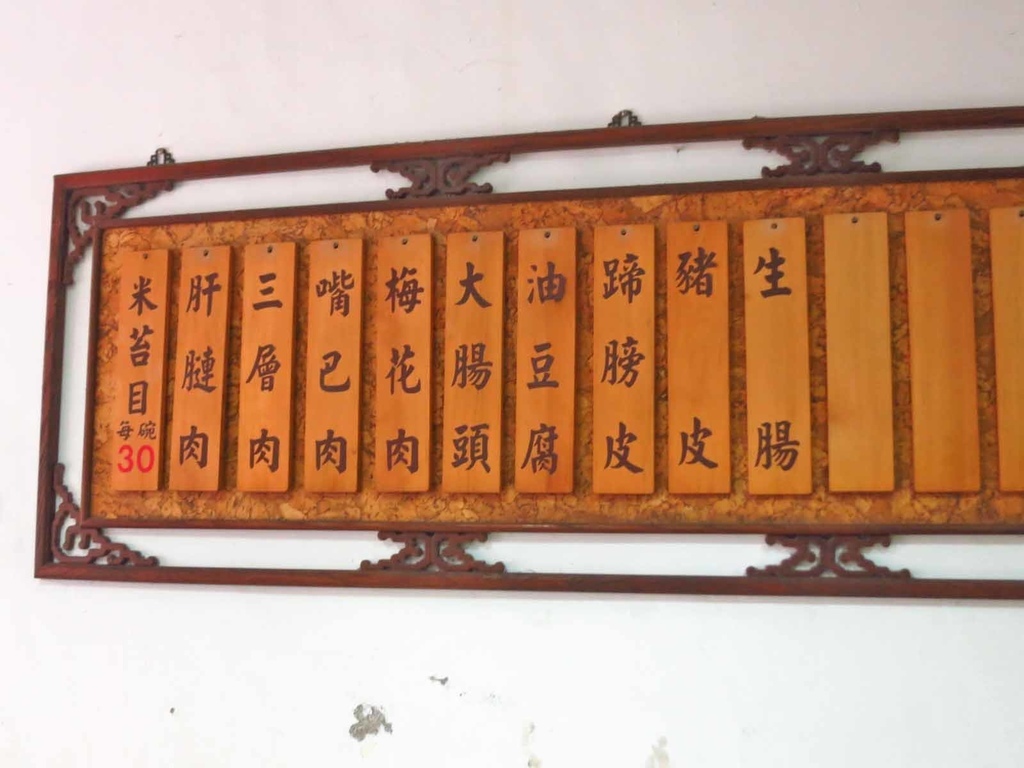 米苔目
每碗
30
肝腱肉
三層肉
嘴巴肉
梅花肉
大腸頭
油豆腐
蹄膀皮
豬皮
生腸